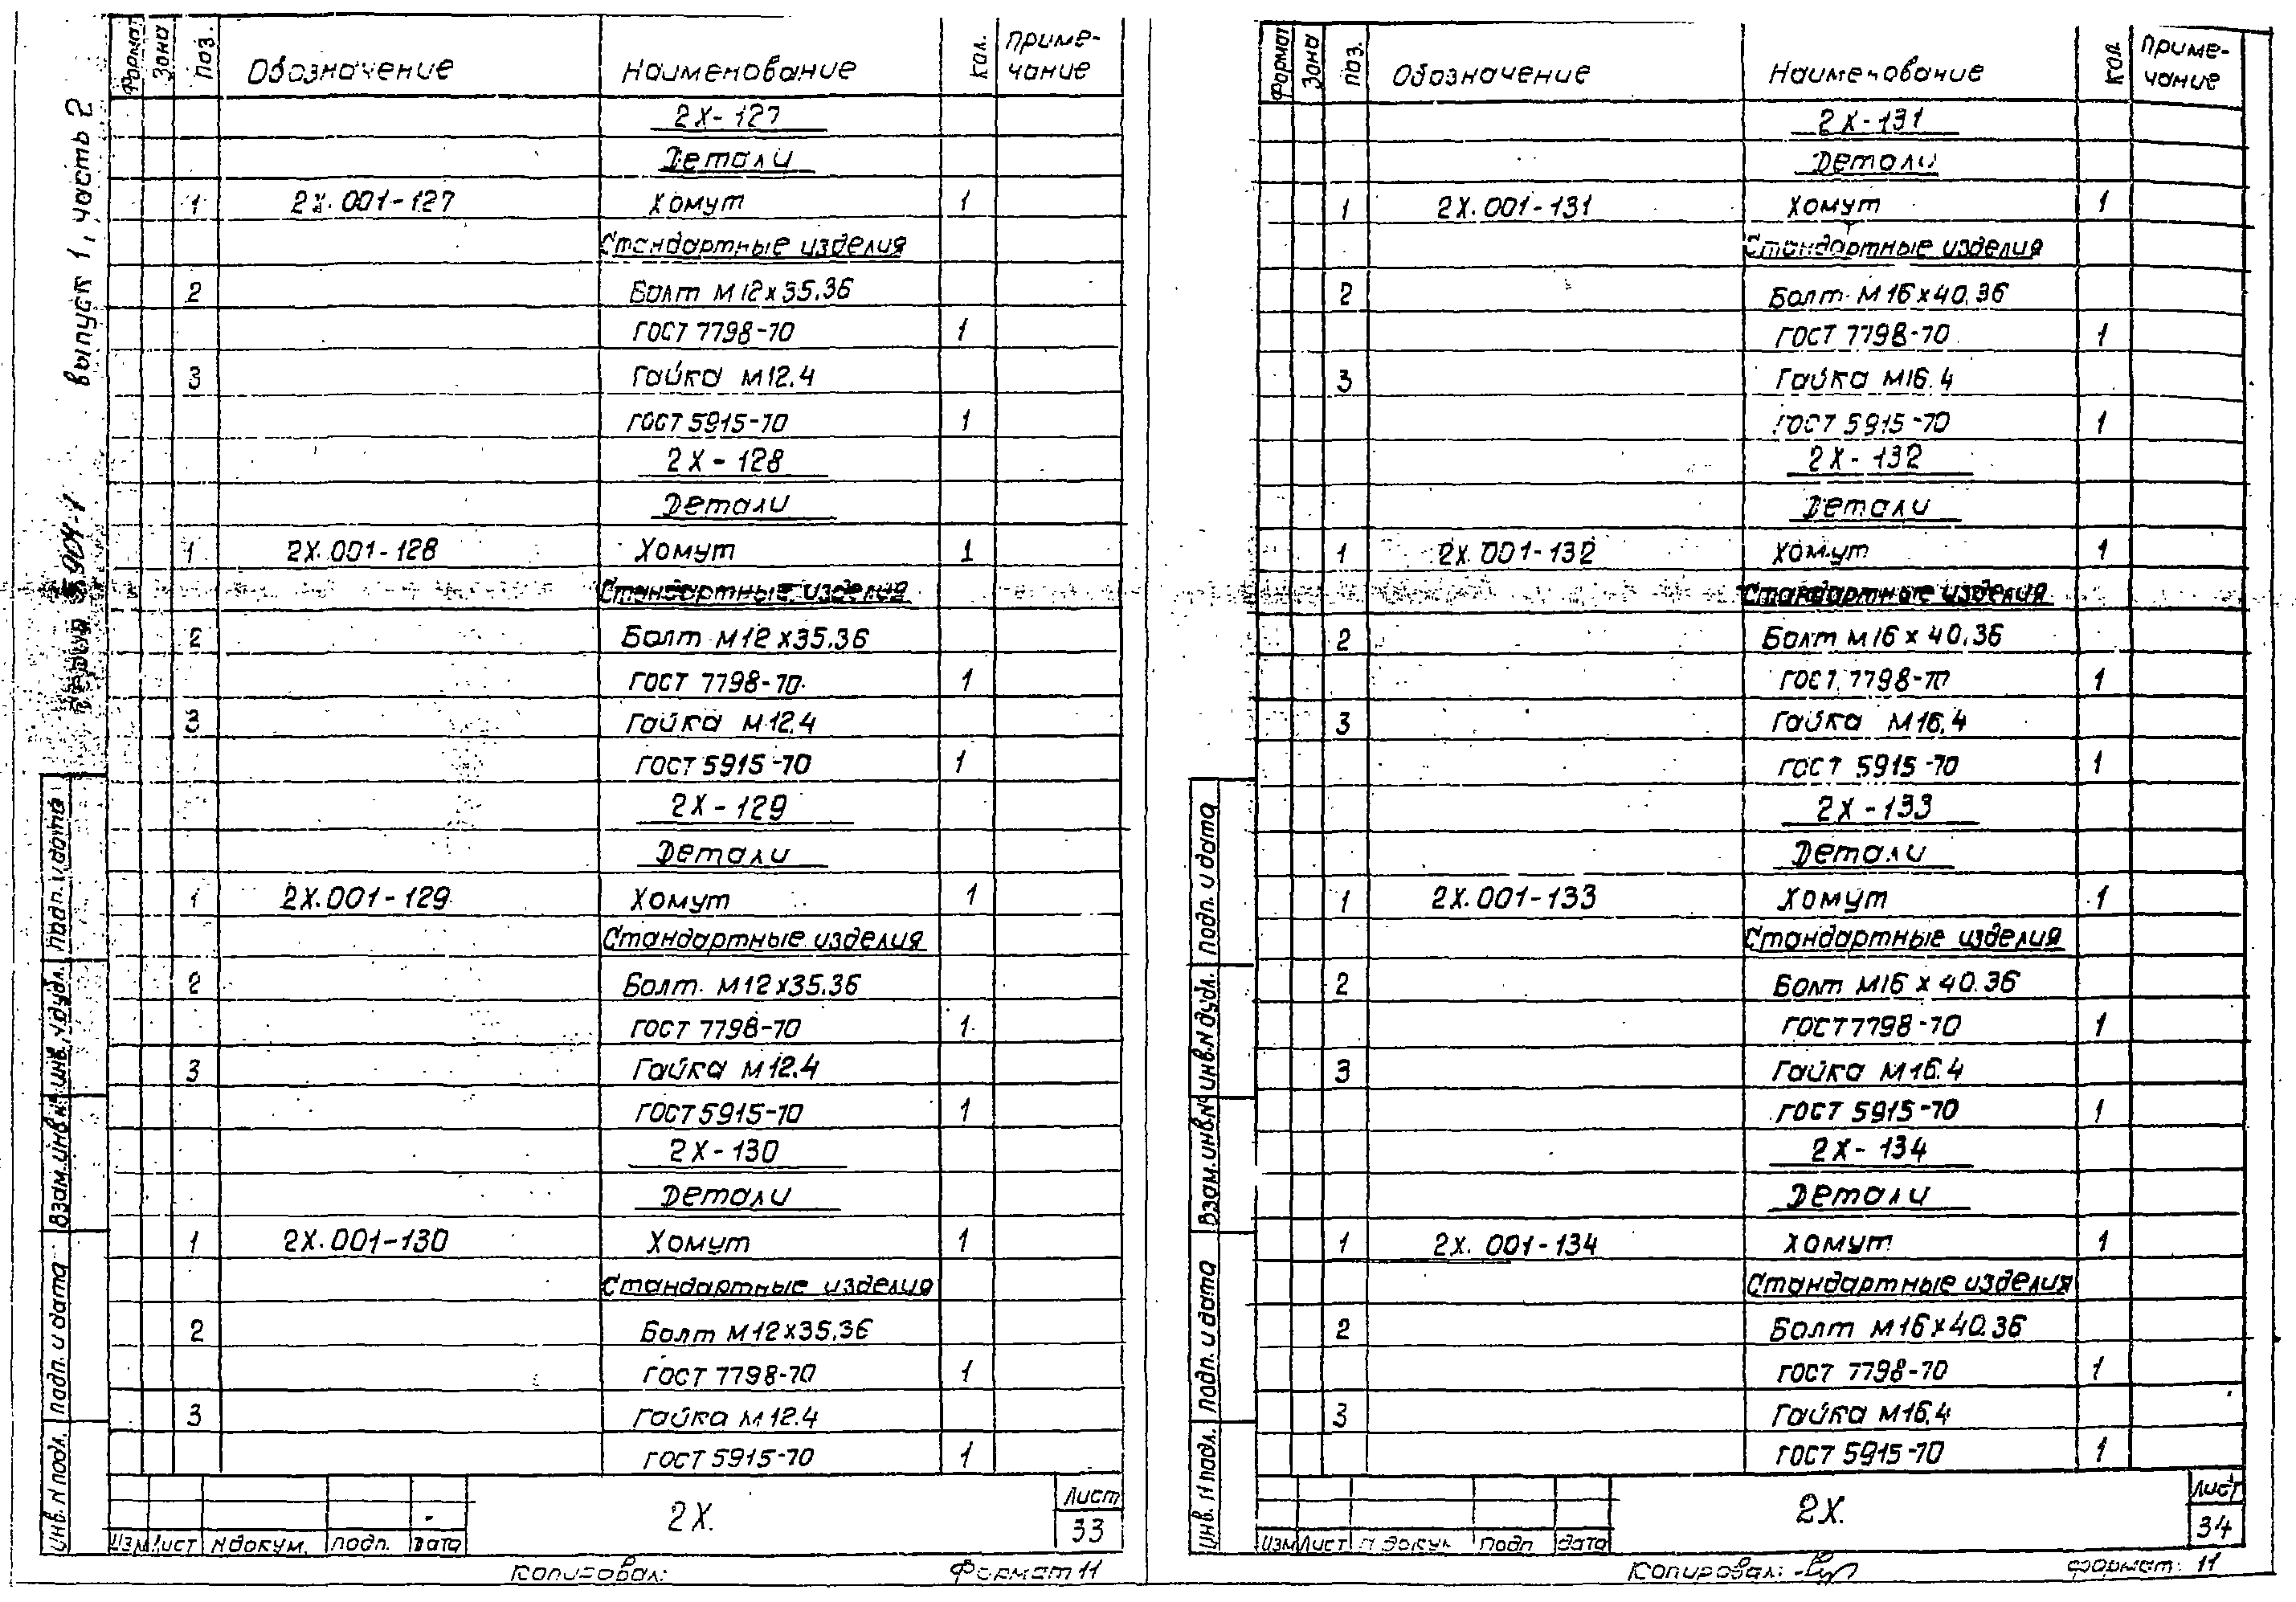 выпуск 1, часть 2
5.904-1
Формат Зона Поз. Обозначение Наименование Кол. Приме-
чание
2Х-127
Детали
1 2Х.001-127 Хомут 1
Стандартные изделия
2 Болт М12х35.36
ГОСТ 7798-70 1
3 Гайка М12.4
ГОСТ 5915-70 1
2Х-128
Детали
1 2Х.001-128 Хомут 1
Стандартные изделия
2 Болт М12х35.36
ГОСТ 7798-70 1
3 Гайка М12.4
ГОСТ 5915-70 1
2Х-129
Детали
1 2Х.001-129 Хомут 1
Стандартные изделия
2 Болт М12х35.36
ГОСТ 7798-70 1
3 Гайка М12.4
ГОСТ 5915-70 1
2Х-130
Детали
1 2Х.001-130 Хомут 1
Стандартные изделия
2 Болт М12х35.36
ГОСТ 7798-70 1
3 Гайка М12.4
ГОСТ 5915-70 1
Инв. N подл. Подп. и дата Взам. инв. N Инв. N дубл. Подп. и дата
Изм Лист N докум. Подп. Дата
2Х.
Лист
33
Копировал: Формат 11
Формат Зона Поз. Обозначение Наименование Кол. Приме-
чание
2Х-131
Детали
1 2Х.001-131 Хомут 1
Стандартные изделия
2 Болт М16х40.36
ГОСТ 7798-70 1
3 Гайка М16.4
ГОСТ 5915-70 1
2Х-132
Детали
1 2Х.001-132 Хомут 1
Стандартные изделия
2 Болт М16х40.36
ГОСТ 7798-70 1
3 Гайка М16.4
ГОСТ 5915-70 1
2Х-133
Детали
1 2Х.001-133 Хомут 1
Стандартные изделия
2 Болт М16х40.36
ГОСТ 7798-70 1
3 Гайка М16.4
ГОСТ 5915-70 1
2Х-134
Детали
1 2Х.001-134 Хомут 1
Стандартные изделия
2 Болт М16х40.36
ГОСТ 7798-70 1
3 Гайка М16.4
ГОСТ 5915-70 1
Инв. N подл. Подп. и дата Взам. инв. N Инв. N дубл. Подп. и дата
Изм Лист N докум Подп Дата
2Х.
Лист
34
Копировал: Формат: 11